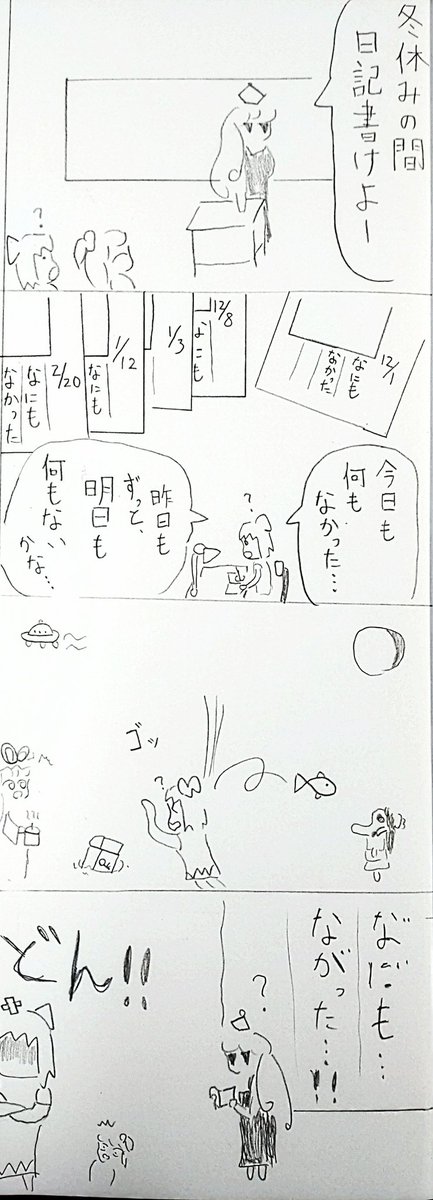 冬休みの間
日記書けよー
?
12/1
なにも
なかった
12/8
なにも
1/3
1/12
なにも
2/20
なにも
なかった
今日も
何も
なかった…
?
昨日も
ずっと、
明日も
何もない
かな…
ゴッ
?
な゛に゛も…
ながった…!!
?
どん!!